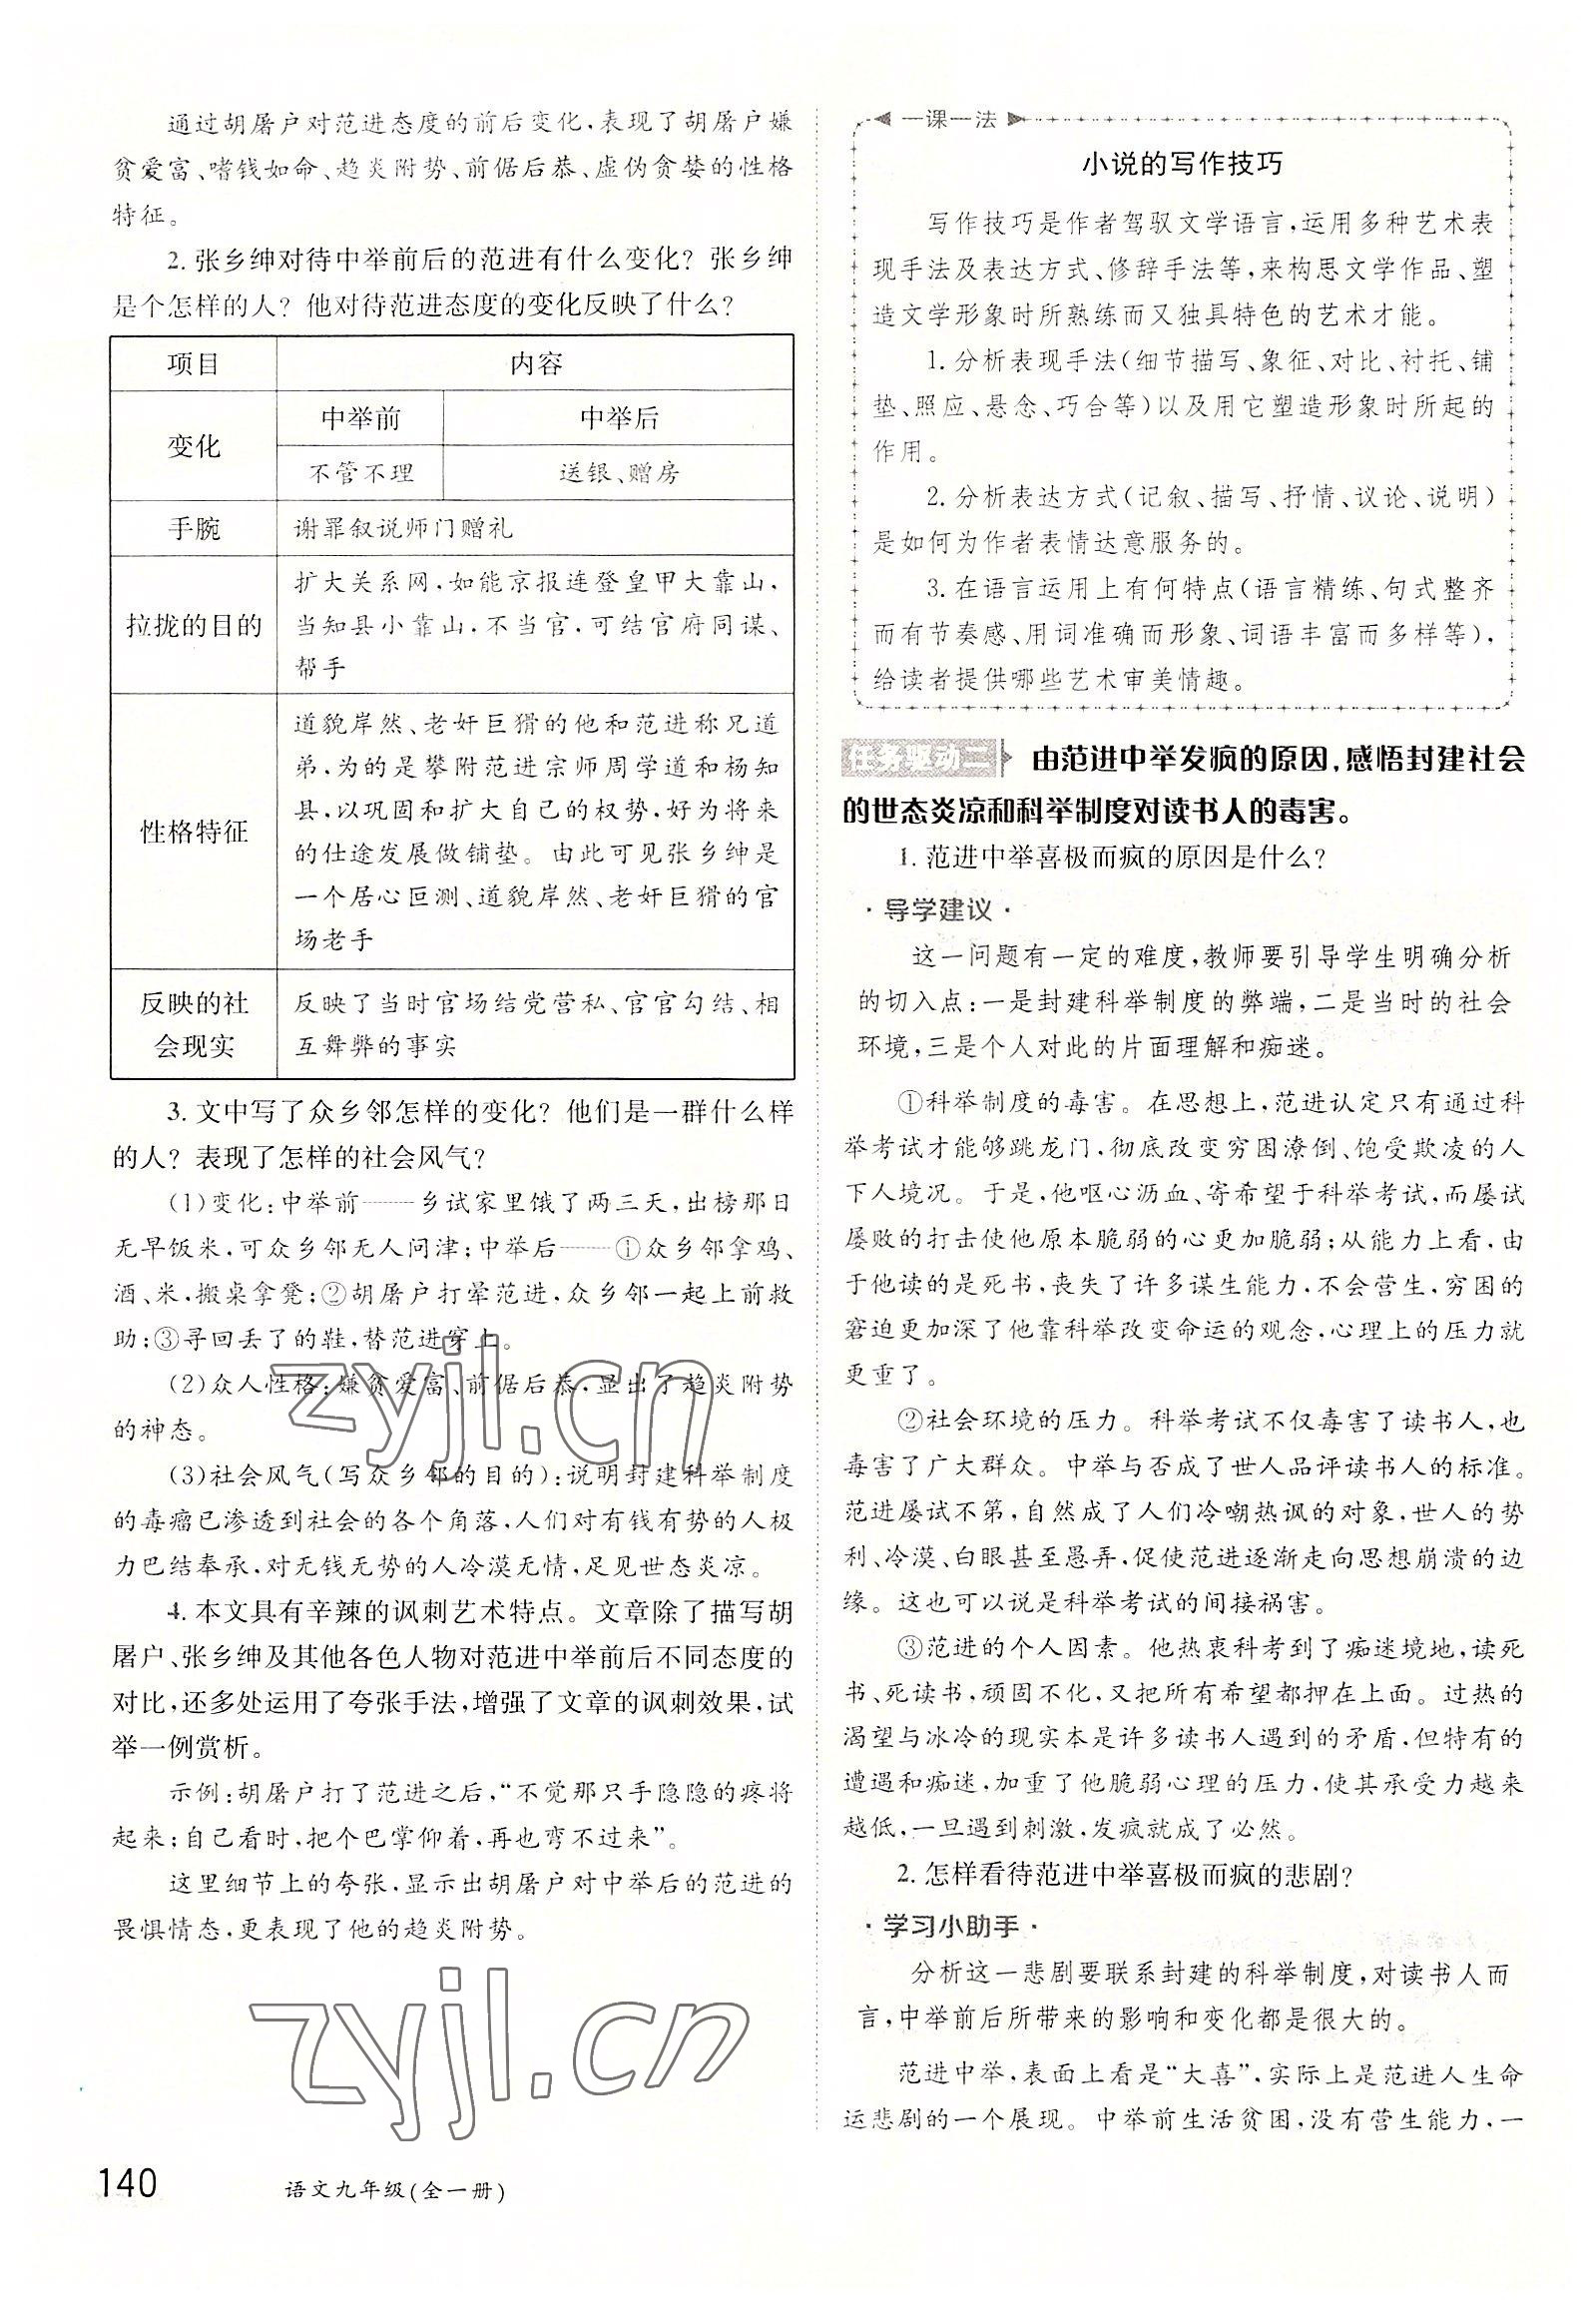 通过胡屠户对范进态度的前后变化,表现了胡屠户嫌
贫爱富、嗜钱如命、趋炎附势、前倨后恭、虚伪贪婪的性格
特征。
2. 张乡绅对待中举前后的范进有什么变化? 张乡绅
是个怎样的人? 他对待范进态度的变化反映了什么?
项目 内容
变化 中举前 中举后
不管不理 送银、赠房
手腕 谢罪叙说师门赠礼
拉拢的目的 扩大关系网,如能京报连登皇甲大靠山,
当知县小靠山,不当官,可结官府同谋、
帮手
性格特征 道貌岸然、老奸巨猾的他和范进称兄道
弟,为的是攀附范进宗师周学道和杨知
县,以巩固和扩大自己的权势,好为将来
的仕途发展做铺垫。由此可见张乡绅是
一个居心叵测、道貌岸然、老奸巨猾的官
场老手
反映的社
会现实 反映了当时官场结党营私、官官勾结、相
互舞弊的事实
3. 文中写了众乡邻怎样的变化? 他们是一群什么样
的人? 表现了怎样的社会风气?
(1)变化:中举前——乡试家里饿了两三天,出榜那日
无早饭米,可众乡邻无人问津;中举后——①众乡邻拿鸡、
酒、米,搬桌拿凳;②胡屠户打晕范进,众乡邻一起上前救
助;③寻回丢了的鞋,替范进穿上。
(2)众人性格:嫌贫爱富、前倨后恭,显出了趋炎附势
的神态。
(3)社会风气(写众乡邻的目的):说明封建科举制度
的毒瘤已渗透到社会的各个角落,人们对有钱有势的人极
力巴结奉承,对无钱无势的人冷漠无情,足见世态炎凉。
4. 本文具有辛辣的讽刺艺术特点。文章除了描写胡
屠户、张乡绅及其他各色人物对范进中举前后不同态度的
对比,还多处运用了夸张手法,增强了文章的讽刺效果,试
举一例赏析。
示例:胡屠户打了范进之后,“不觉那只手隐隐的疼将
起来;自己看时,把个巴掌仰着,再也弯不过来”。
这里细节上的夸张,显示出胡屠户对中举后的范进的
畏惧情态,更表现了他的趋炎附势。
zyjl.cn
zyjl.cn
140
语文九年级(全一册)
一课一法
小说的写作技巧
写作技巧是作者驾驭文学语言,运用多种艺术表
现手法及表达方式、修辞手法等,来构思文学作品、塑
造文学形象时所熟练而又独具特色的艺术才能。
1. 分析表现手法(细节描写、象征、对比、衬托、铺
垫、照应、悬念、巧合等)以及用它塑造形象时所起的
作用。
2. 分析表达方式(记叙、描写、抒情、议论、说明)
是如何为作者表情达意服务的。
3. 在语言运用上有何特点(语言精练、句式整齐
而有节奏感、用词准确而形象、词语丰富而多样等),
给读者提供哪些艺术审美情趣。
任务驱动二 由范进中举发疯的原因,感悟封建社会
的世态炎凉和科举制度对读书人的毒害。
1. 范进中举喜极而疯的原因是什么?
·导学建议·
这一问题有一定的难度,教师要引导学生明确分析
的切入点:一是封建科举制度的弊端,二是当时的社会
环境,三是个人对此的片面理解和痴迷。
①科举制度的毒害。在思想上,范进认定只有通过科
举考试才能够跳龙门,彻底改变穷困潦倒、饱受欺凌的人
下人境况。于是,他呕心沥血、寄希望于科举考试,而屡试
屡败的打击使他原本脆弱的心更加脆弱;从能力上看,由
于他读的是死书,丧失了许多谋生能力,不会营生,穷困的
窘迫更加深了他靠科举改变命运的观念,心理上的压力就
更重了。
②社会环境的压力。科举考试不仅毒害了读书人,也
毒害了广大群众。中举与否成了世人品评读书人的标准。
范进屡试不第,自然成了人们冷嘲热讽的对象,世人的势
利、冷漠、白眼甚至愚弄,促使范进逐渐走向思想崩溃的边
缘。这也可以说是科举考试的间接祸害。
③范进的个人因素。他热衷科考到了痴迷境地,读死
书、死读书,顽固不化,又把所有希望都押在上面。过热的
渴望与冰冷的现实本是许多读书人遇到的矛盾,但特有的
遭遇和痴迷,加重了他脆弱心理的压力,使其承受力越来
越低,一旦遇到刺激,发疯就成了必然。
2. 怎样看待范进中举喜极而疯的悲剧?
·学习小助手·
分析这一悲剧要联系封建的科举制度,对读书人而
言,中举前后所带来的影响和变化都是很大的。
范进中举,表面上看是“大喜”,实际上是范进人生命
运悲剧的一个展现。中举前生活贫困,没有营生能力,一